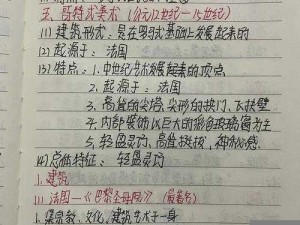 五、哥特式美术（公元12世纪—15世纪）
(1) 建筑形式：是在罗马式基础上发展起来的
(2) 起源于：法国
(3) 特点：1. 中世纪艺术发展起来的顶点
2. 起源于：法国
3. 高耸的尖塔、尖形的拱门、飞扶壁
4. 内部装饰以巨大的彩色玻璃窗为主
5. 轻盈灵巧、高耸挺拔、神秘感
(4) 总体特征：轻盈灵巧
1. 建筑
(1) 法国—《巴黎圣母院》（最著名）
1. 集宗教、文化、建筑艺术于一身